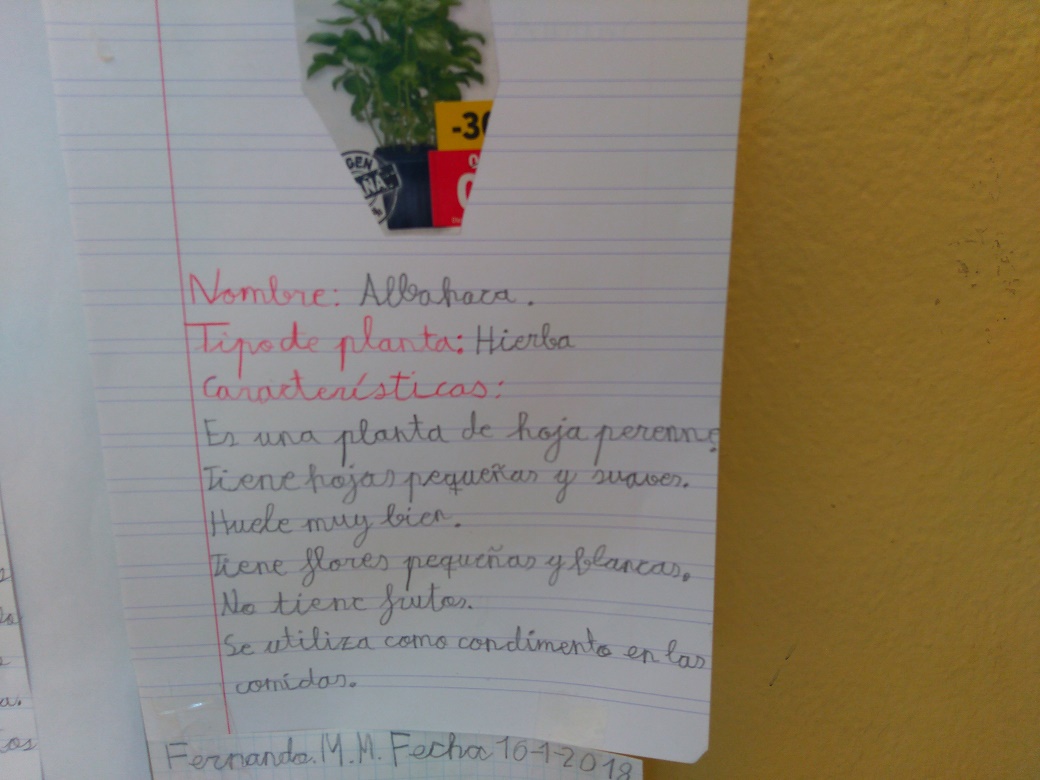 -30
GEN
ÑA
0
Nombre: Albahaca.
Tipo de planta: Hierba
Características:
Es una planta de hoja perenne
Tiene hojas pequeñas y suaves.
Huele muy bien.
Tiene flores pequeñas y blancas.
No tiene frutos.
Se utiliza como condimento en las
comidas.
Fernando. M. M. Fecha 16-1-2018
a.
os